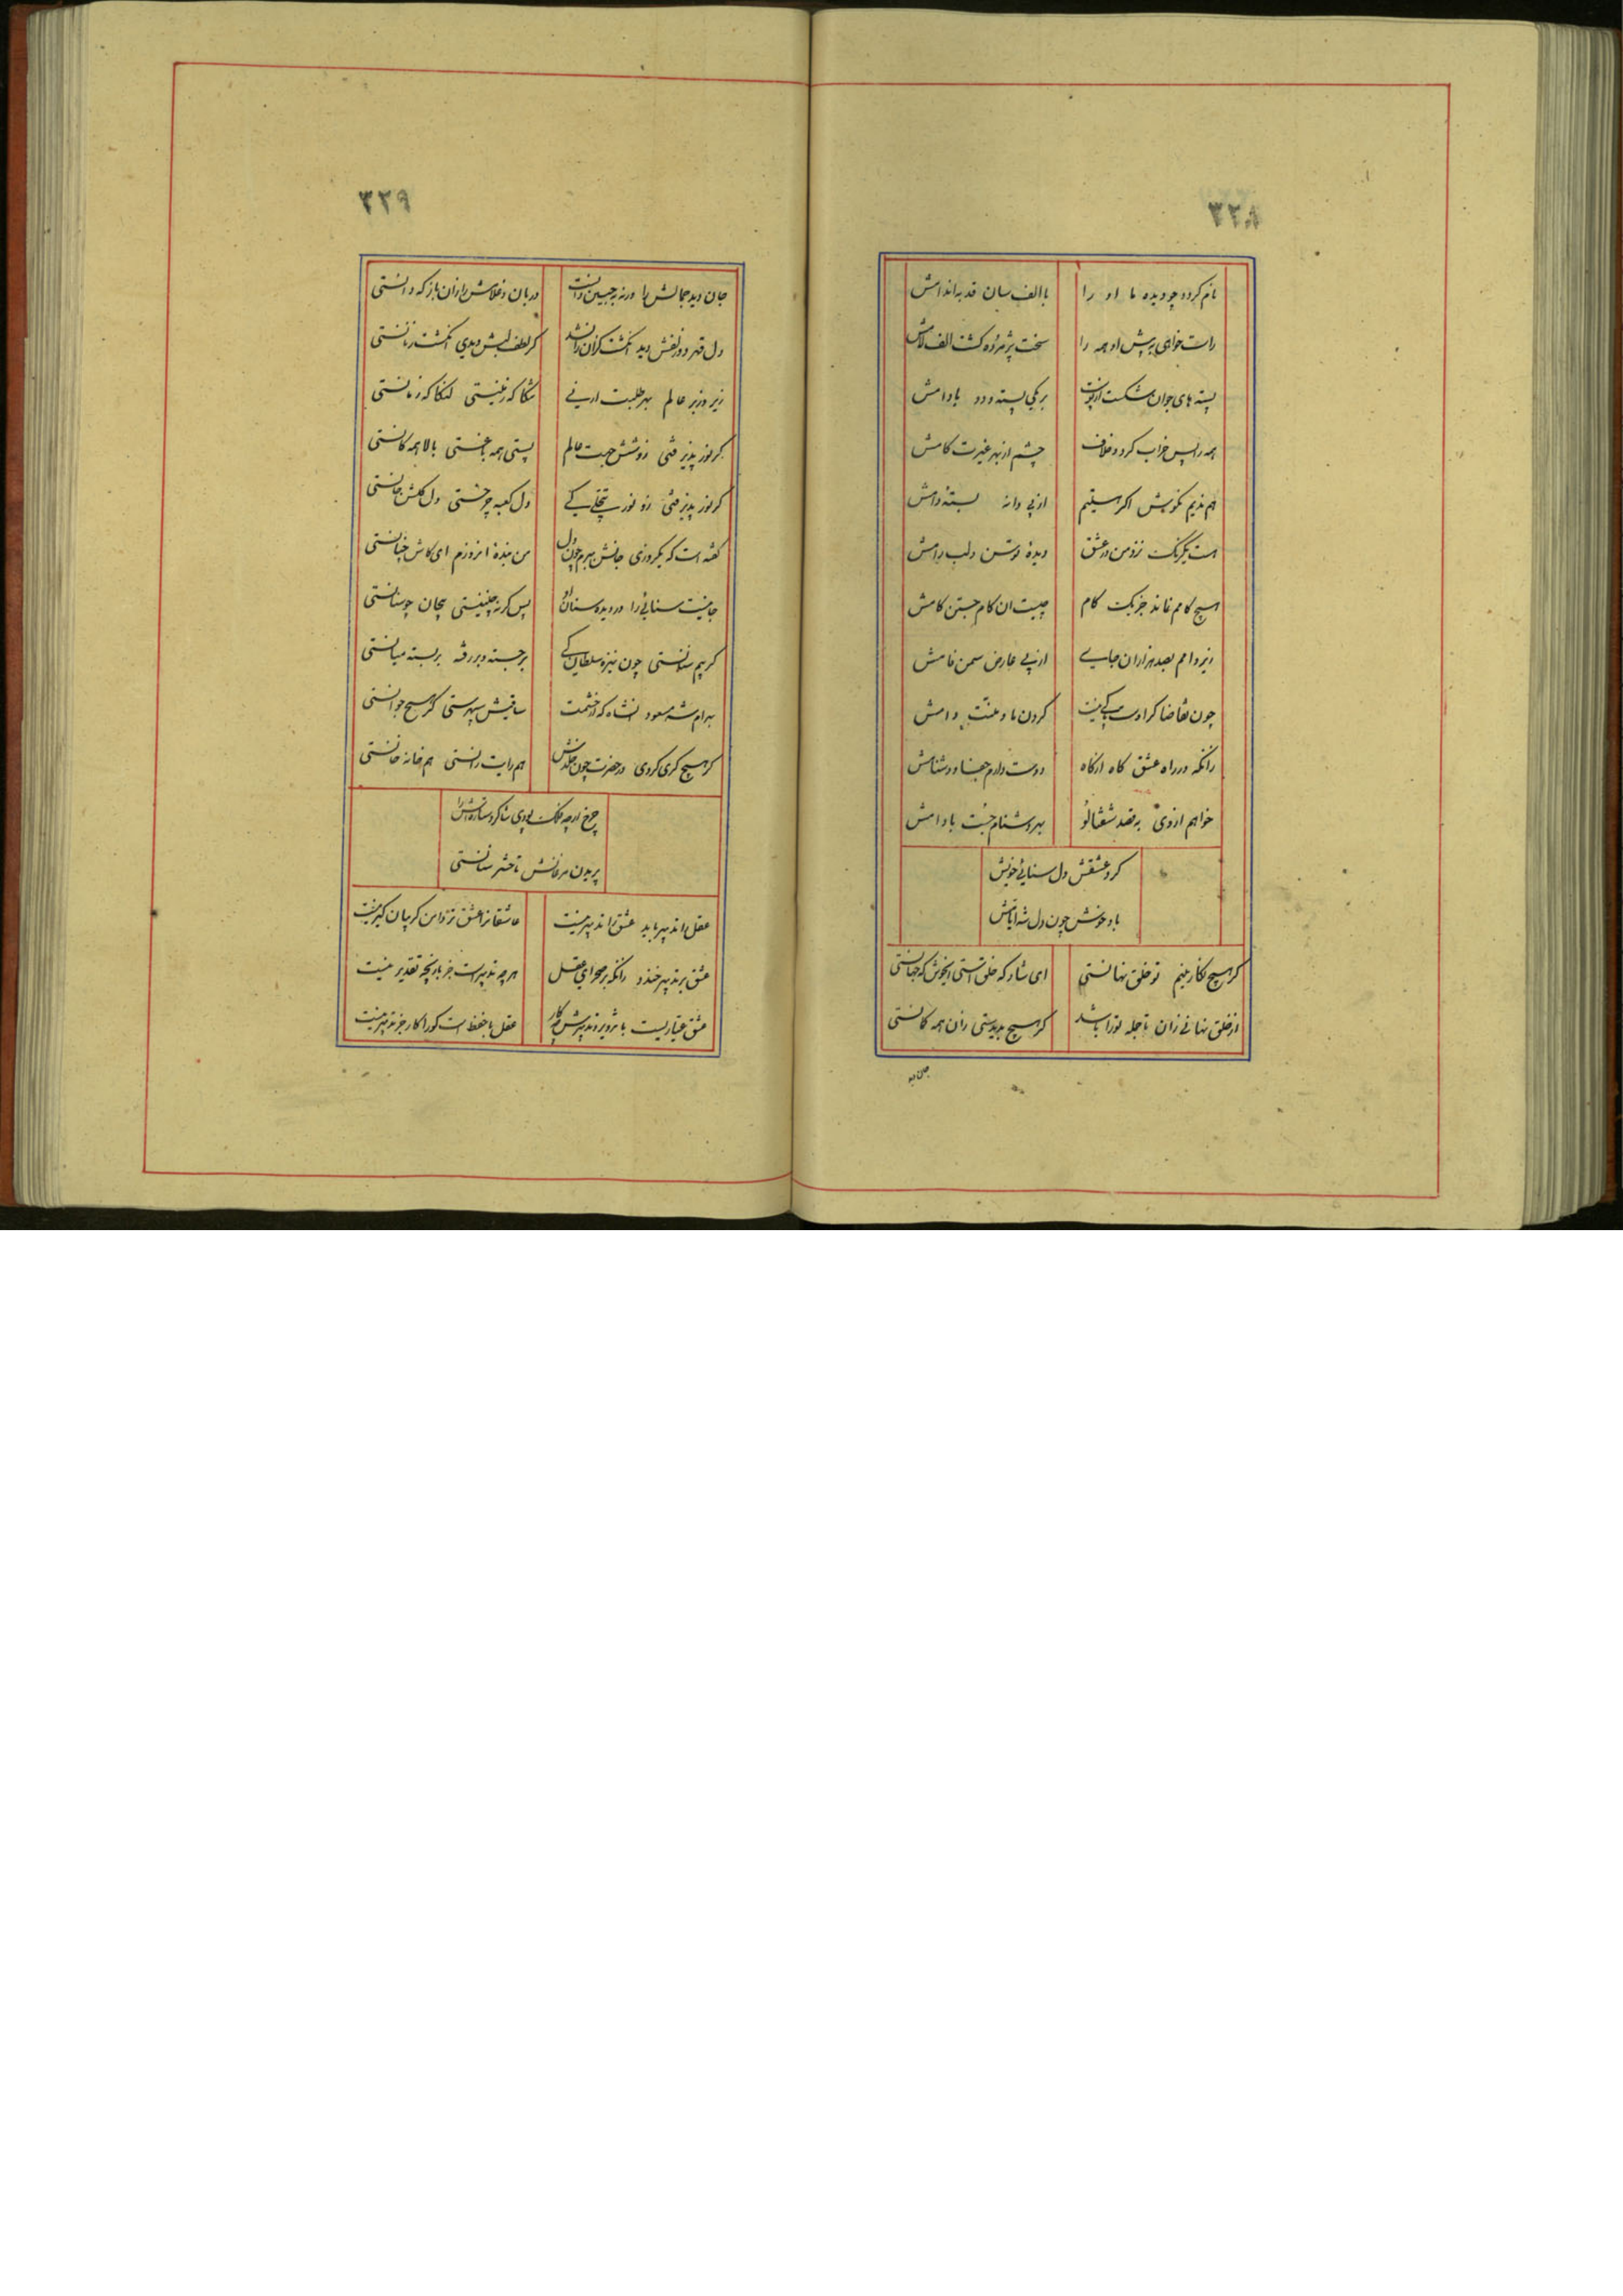 ۳۲۸
نام کرده چو دیده ما او را با الف سان قد به اندامش
راست خواهی پیش او همه را سخت پژمرده کشت الف لامش
پسته های جوان شکست از پوست بر یکی پسته و دو بادامش
همه را پس خراب کرد و خلاف چشم از بهر غیرت کامش
هم ندیم نکویش اکر از پی دانه بسته دامش
هست یکرنک نزد من در عشق دیده توسن و لب رامش
هیچ کامم نماند جز یک کام چیست ان کام جستن کامش
نیز وامم بصد هزاران جان از پی عارض سمن فامش
چون تقاضا کر اوست کردن ما و منت وامش
زانکه در راه عشق کاه ازکاه دوست دارم جفا و دشنامش
خواهم از وی به قصد شفتالو بهر دشنام جست بادامش
کرد عشقش دل سنائی خویش
باد خونش چون دل شه ایامش
کر هیچ نکارینم تو خلق نهانستی ای شاد که خلق استی ای خوش که جهانستی
از خلق نهانی زان تا جمله تو را باشد کر هیچ پدیدستی زان همه کانستی
جان دید
۳۲۹
جان دید جمالش را ورنه به جبین دانست دربان و غلامش را زان باز که دانستی
دل قهر دو زلفش دید انکشت کزان زان شد کر لطف لبش دیدی انکشت زنانستی
زیر و زبر عالم بهر طلبت ارنی تنکا که زمینستی لنکا که زمانستی
کر نور پذیر فتی زو شش جهت عالم پستی همه باغستی بالا همه کانستی
کر نور پذیر فتی زو نور تجلی کی دل کعبه چرخستی دل کلشن جانستی
کفته است که یکروزی جانش ببرم چون دل من بنده ان روزم ای کاش چنانستی
جانیست سنائی را در دیده سنان او پس کرنه چنینستی بیجان چو سنانستی
کر بیم سنانستی چون نیزه سلطان کی برجسته و بررفته بربسته میانستی
بهرام شه مسعود انشاه که از خشمت ساقیش سپهرستی کر هیچ جوانستی
کر هیچ کری کردی در حضرت چون خلدش هم رایت رانستی هم خانه خانستی
چرخ ار چه فلک بودی شاکرد ستانش را
پریدن مرغانش تا حشر ستانستی
عقل را تدبیر باید عشق را تدبیر نیست عاشقانرا عشق نزد این کریبان کیر نیست
عشق بر تدبیر خندد زانکه بر صحرای عقل هرچه تدبیرست جز بازیچه تقدیر نیست
عشق عیاریست با تزویر و تدبیرش چه کار عقل با حفظ است کورا کار جز تدبیر نیست